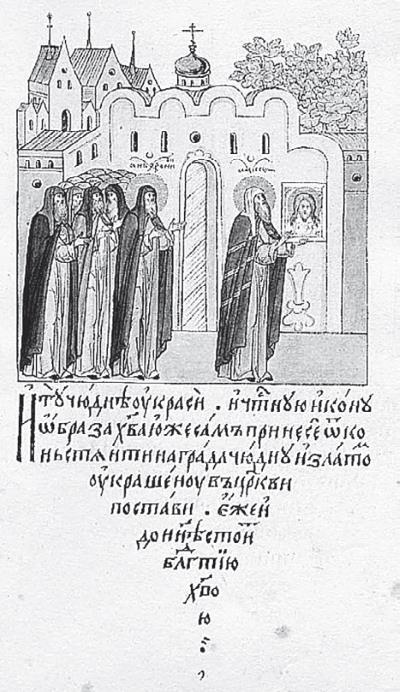 И҆тꙋ чю́днѣ ѹ҆красѝ . и҆ чⷭ҇тнꙋю и҆ко́нꙋ
ѡ҆́браза хв҃а ю҆́же са́мъ принесѐ ѿ ко
ньстѧнти́на гра́да чю́днꙋ и҆ зла́тѡⷨ
ѹ҆кра́шенѹ въ цр҃кви
поста́ви . є҆́же и҆
до нн҃ѣ стои́тъ
блгⷣтїю
хв҃о
ю